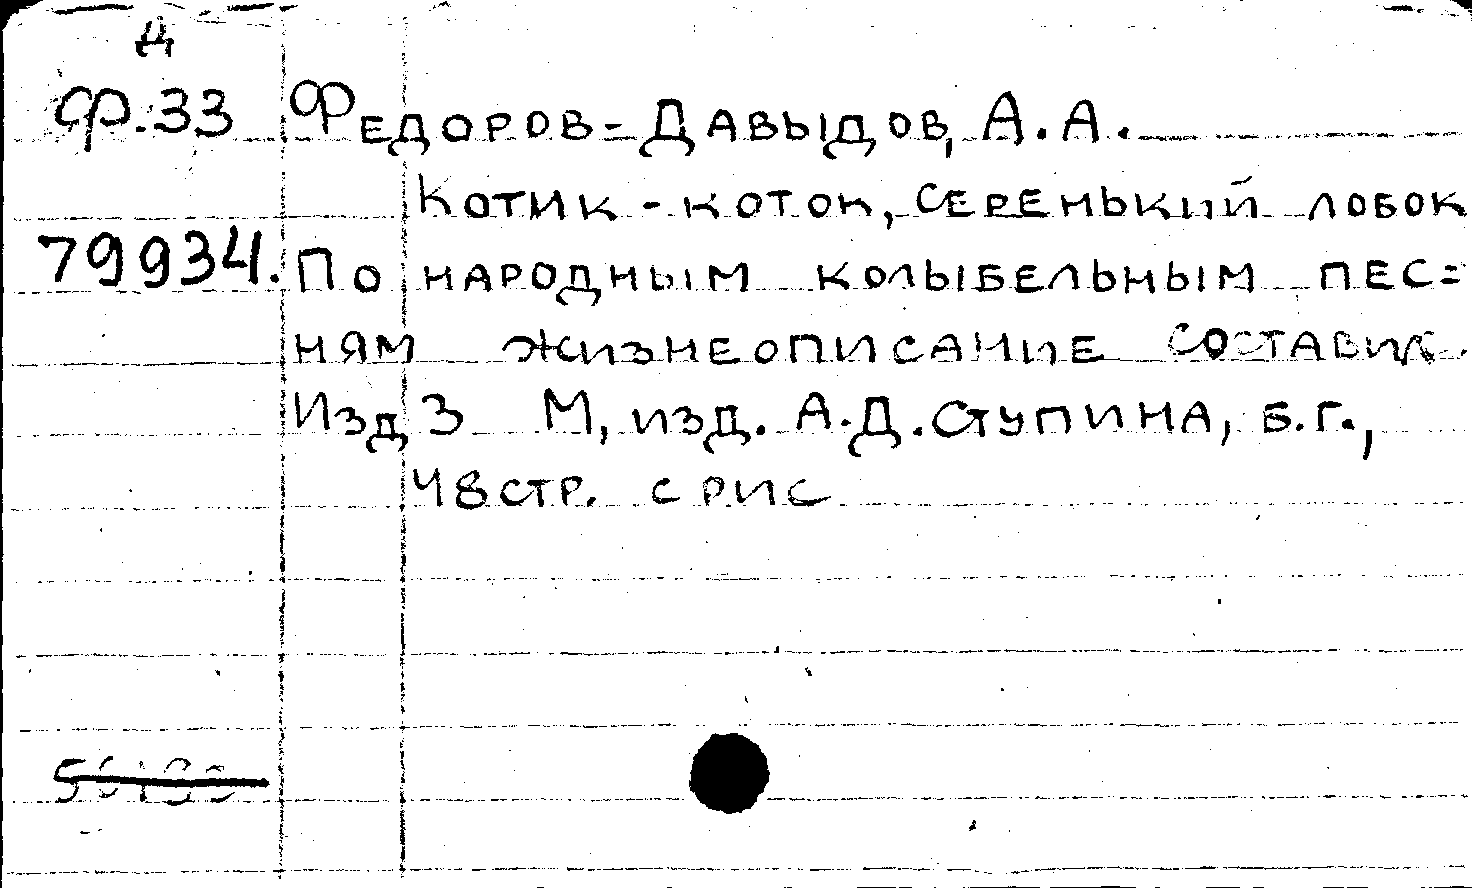 Д
Ф.33 Федоров-Давыдов, А.А.
Котик-коток, серенький лобок
79934. По народным колыбельным пес=
ням жизнеописание составил.
Изд 3 М, изд. А.Д.Ступина, б.г.,
48стр. с рис